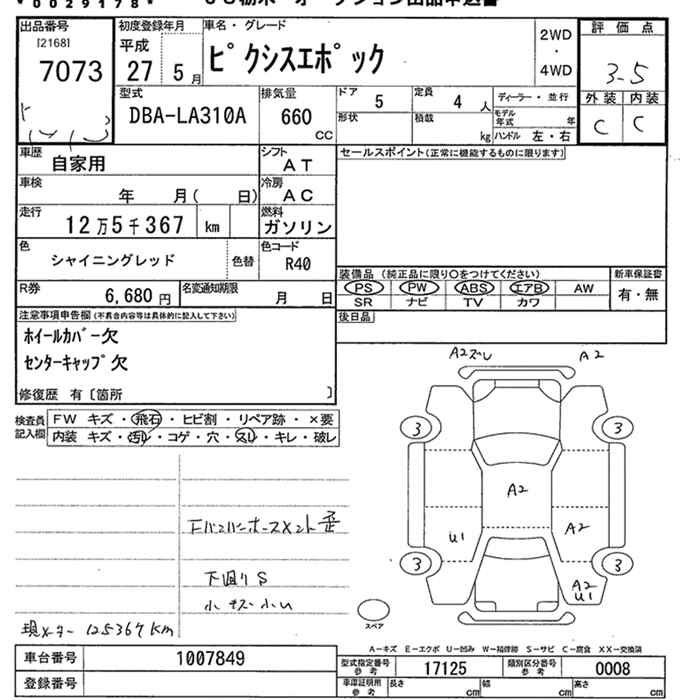 *0029178*
出品番号
[2168]
7073
初度登録年月
平成
27 5月
車名・グレード
ピクシスエポック
2WD
・
4WD
評価点
3-5
外装 内装
C C
型式
DBA-LA310A
排気量
660
cc
ドア
5
定員
4 人
ディーラー・並行
形状
積載
kg
モデル年式 年
ハンドル 左・右
車歴
自家用
シフト
AT
セールスポイント(正常に機能するものに限ります)
車検
年 月( 日)
冷房
AC
走行
12万5千367 km
燃料
ガソリン
色
シャイニングレッド
色替
色コード
R40
装備品(純正品に限り○をつけてください)
新車保証書
PS PW ABS エアB AW
有・無
SR ナビ TV カワ
R券
6,680円
名変通知期限
月 日
後日品
注意事項申告欄(不具合内容等は具体的に記入して下さい)
ホイールカバー欠
センターキャップ欠
修復歴 有〔箇所 〕
A2ズレ A2
検査員記入欄
FW キズ・飛石・ヒビ割・リペア跡・×要
内装 キズ・汚レ・コゲ・穴・スレ・キレ・破レ
3 3
A2
U1 A2
Fバンパーホースメント歪
3 3
下廻りS
A2
U1
小キズ小U
スペア
現メーター 125367km
A-キズ E-エクボ U-凹み W-補修跡 S-サビ C-腐食 XX-交換済
車台番号
1007849
型式指定番号
参考
17125
類別区分番号
参考
0008
登録番号
車庫証明用
参考
長さ cm
幅 cm
高さ cm